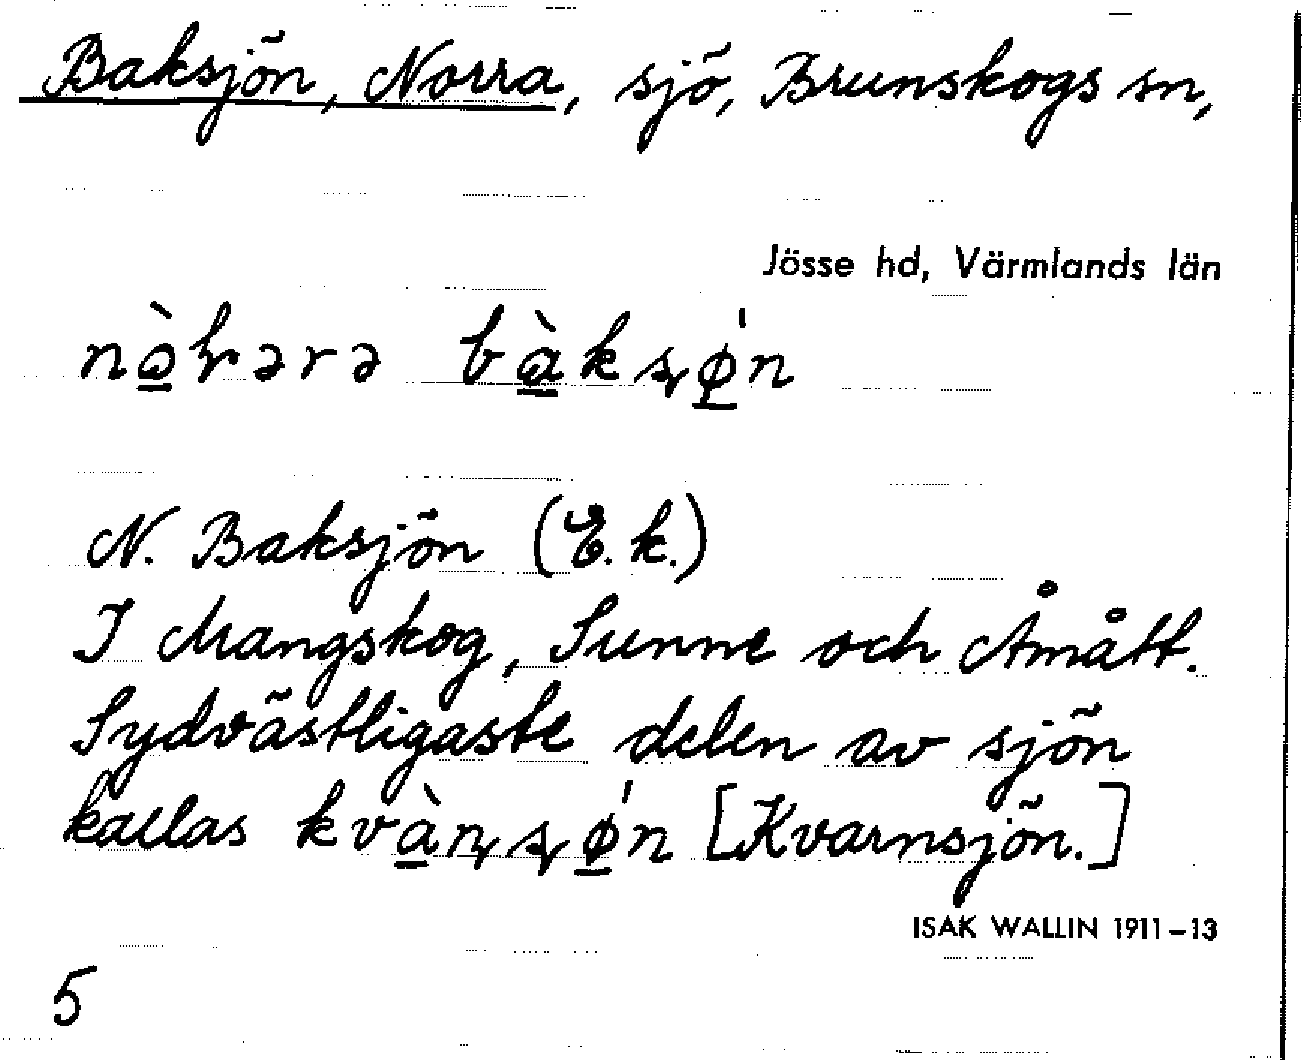 Baksjön, Norra, sjö, Brunskogs sn,
Jösse hd, Värmlands län
N. Baksjön (E.k.)
I Mangskog, Sunne och Åmått.
Sydvästligaste delen av sjön
kallas kvà̠ɳʂǿ̠n [Kvarnsjön.]
ISAK WALLIN 1911–13
5